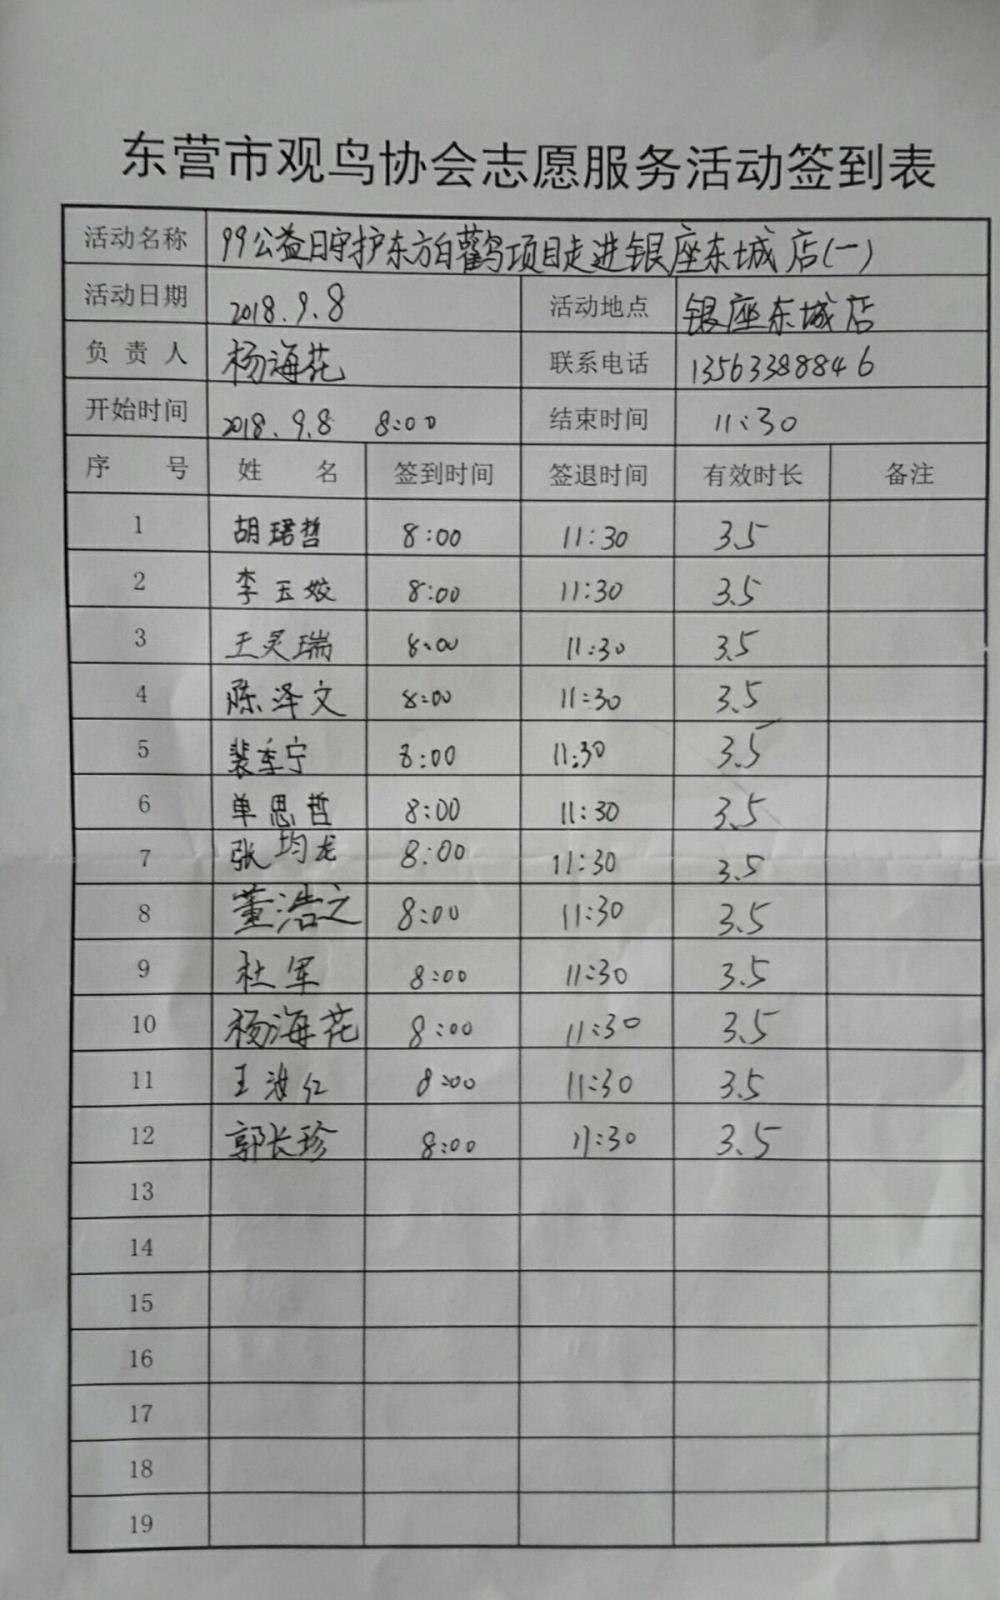 东营市观鸟协会志愿服务活动签到表
活动名称 99公益日守护东方白鹳项目走进银座东城店(一)
活动日期 2018.9.8 活动地点 银座东城店
负责人 杨海花 联系电话 13563388846
开始时间 2018.9.8 8:00 结束时间 11:30
序号 姓名 签到时间 签退时间 有效时长 备注
1 胡珺哲 8:00 11:30 3.5
2 李玉姣 8:00 11:30 3.5
3 王灵瑞 8:00 11:30 3.5
4 陈泽文 8:00 11:30 3.5
5 裴季宁 8:00 11:30 3.5
6 单思哲 8:00 11:30 3.5
7 张均龙 8:00 11:30 3.5
8 董浩之 8:00 11:30 3.5
9 杜军 8:00 11:30 3.5
10 杨海花 8:00 11:30 3.5
11 王 红 8:00 11:30 3.5
12 郭长珍 8:00 11:30 3.5
13
14
15
16
17
18
19